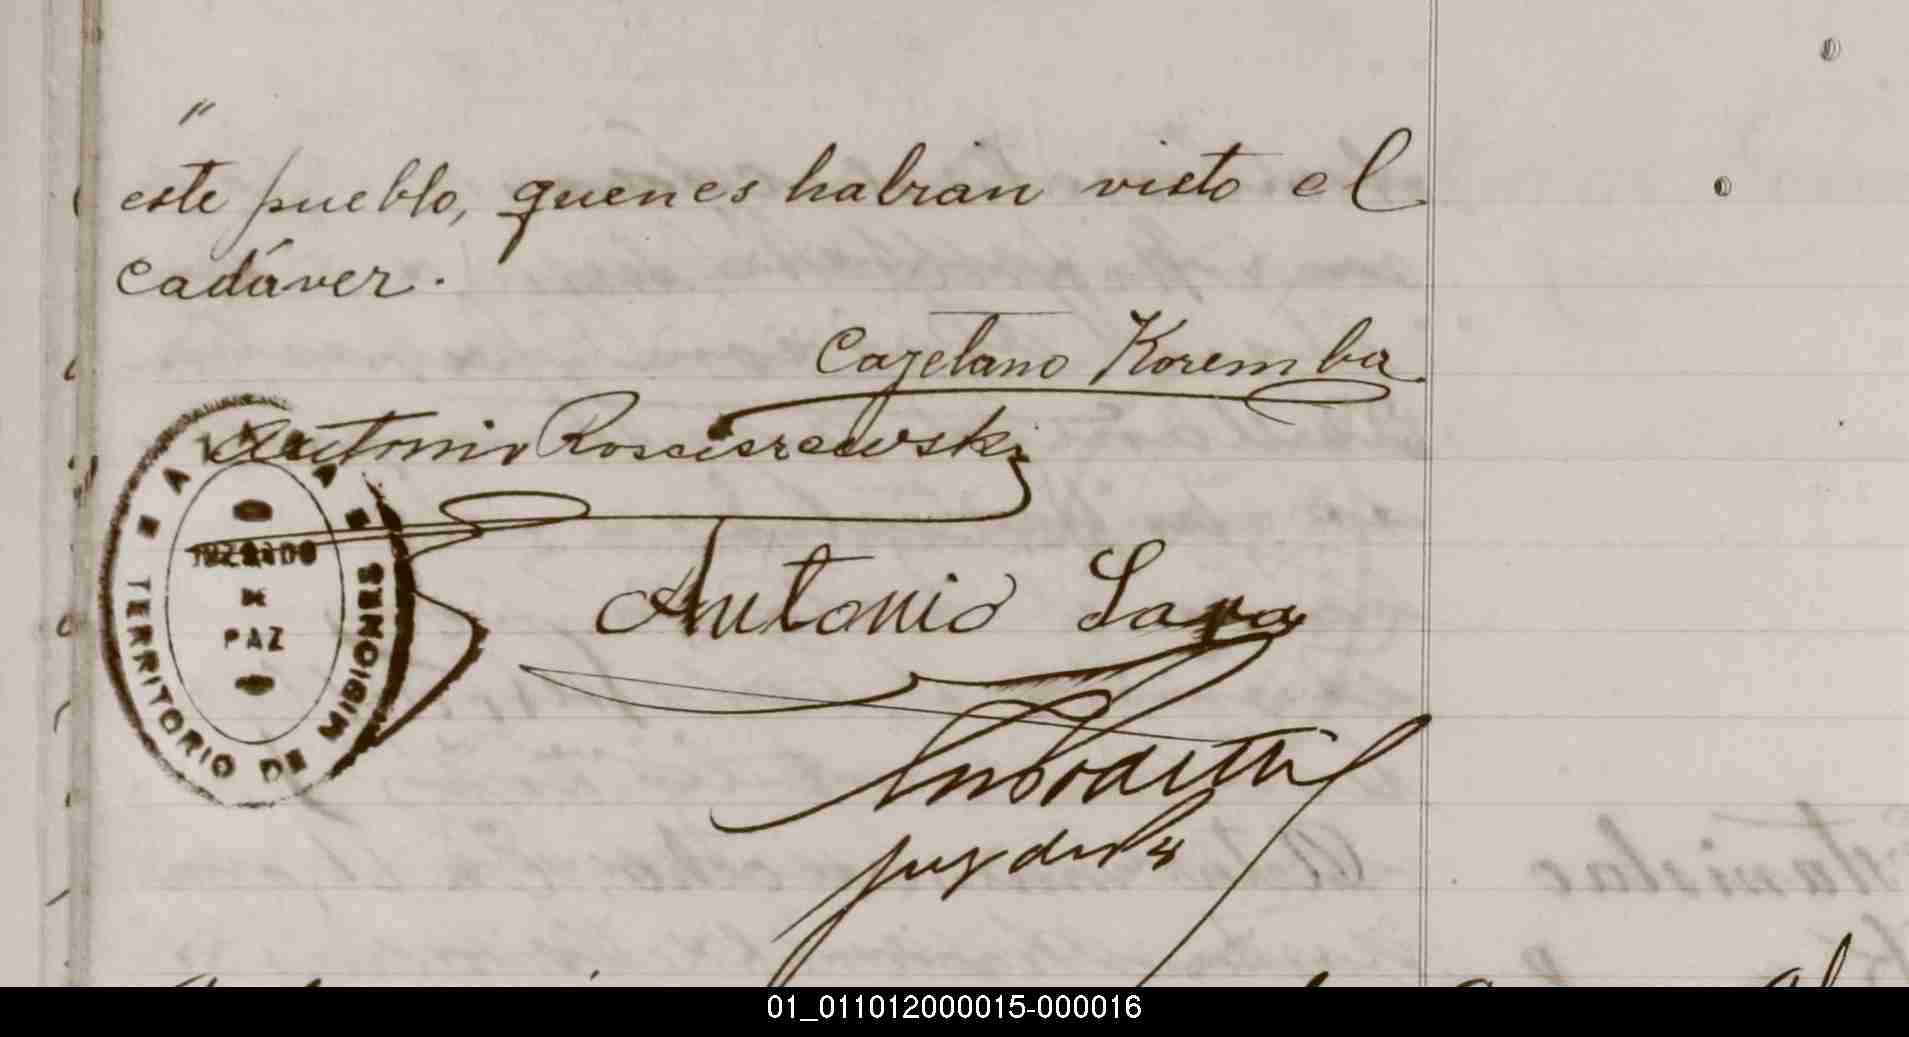 "
este pueblo, quenes habran visto el
cadáver.
Cayetano Koremba
Antonio Rosciszewski
JUZGADO
DE
PAZ
TERRITORIO DE MISIONES
Antonio Lara
juez de
01_011012000015-000016